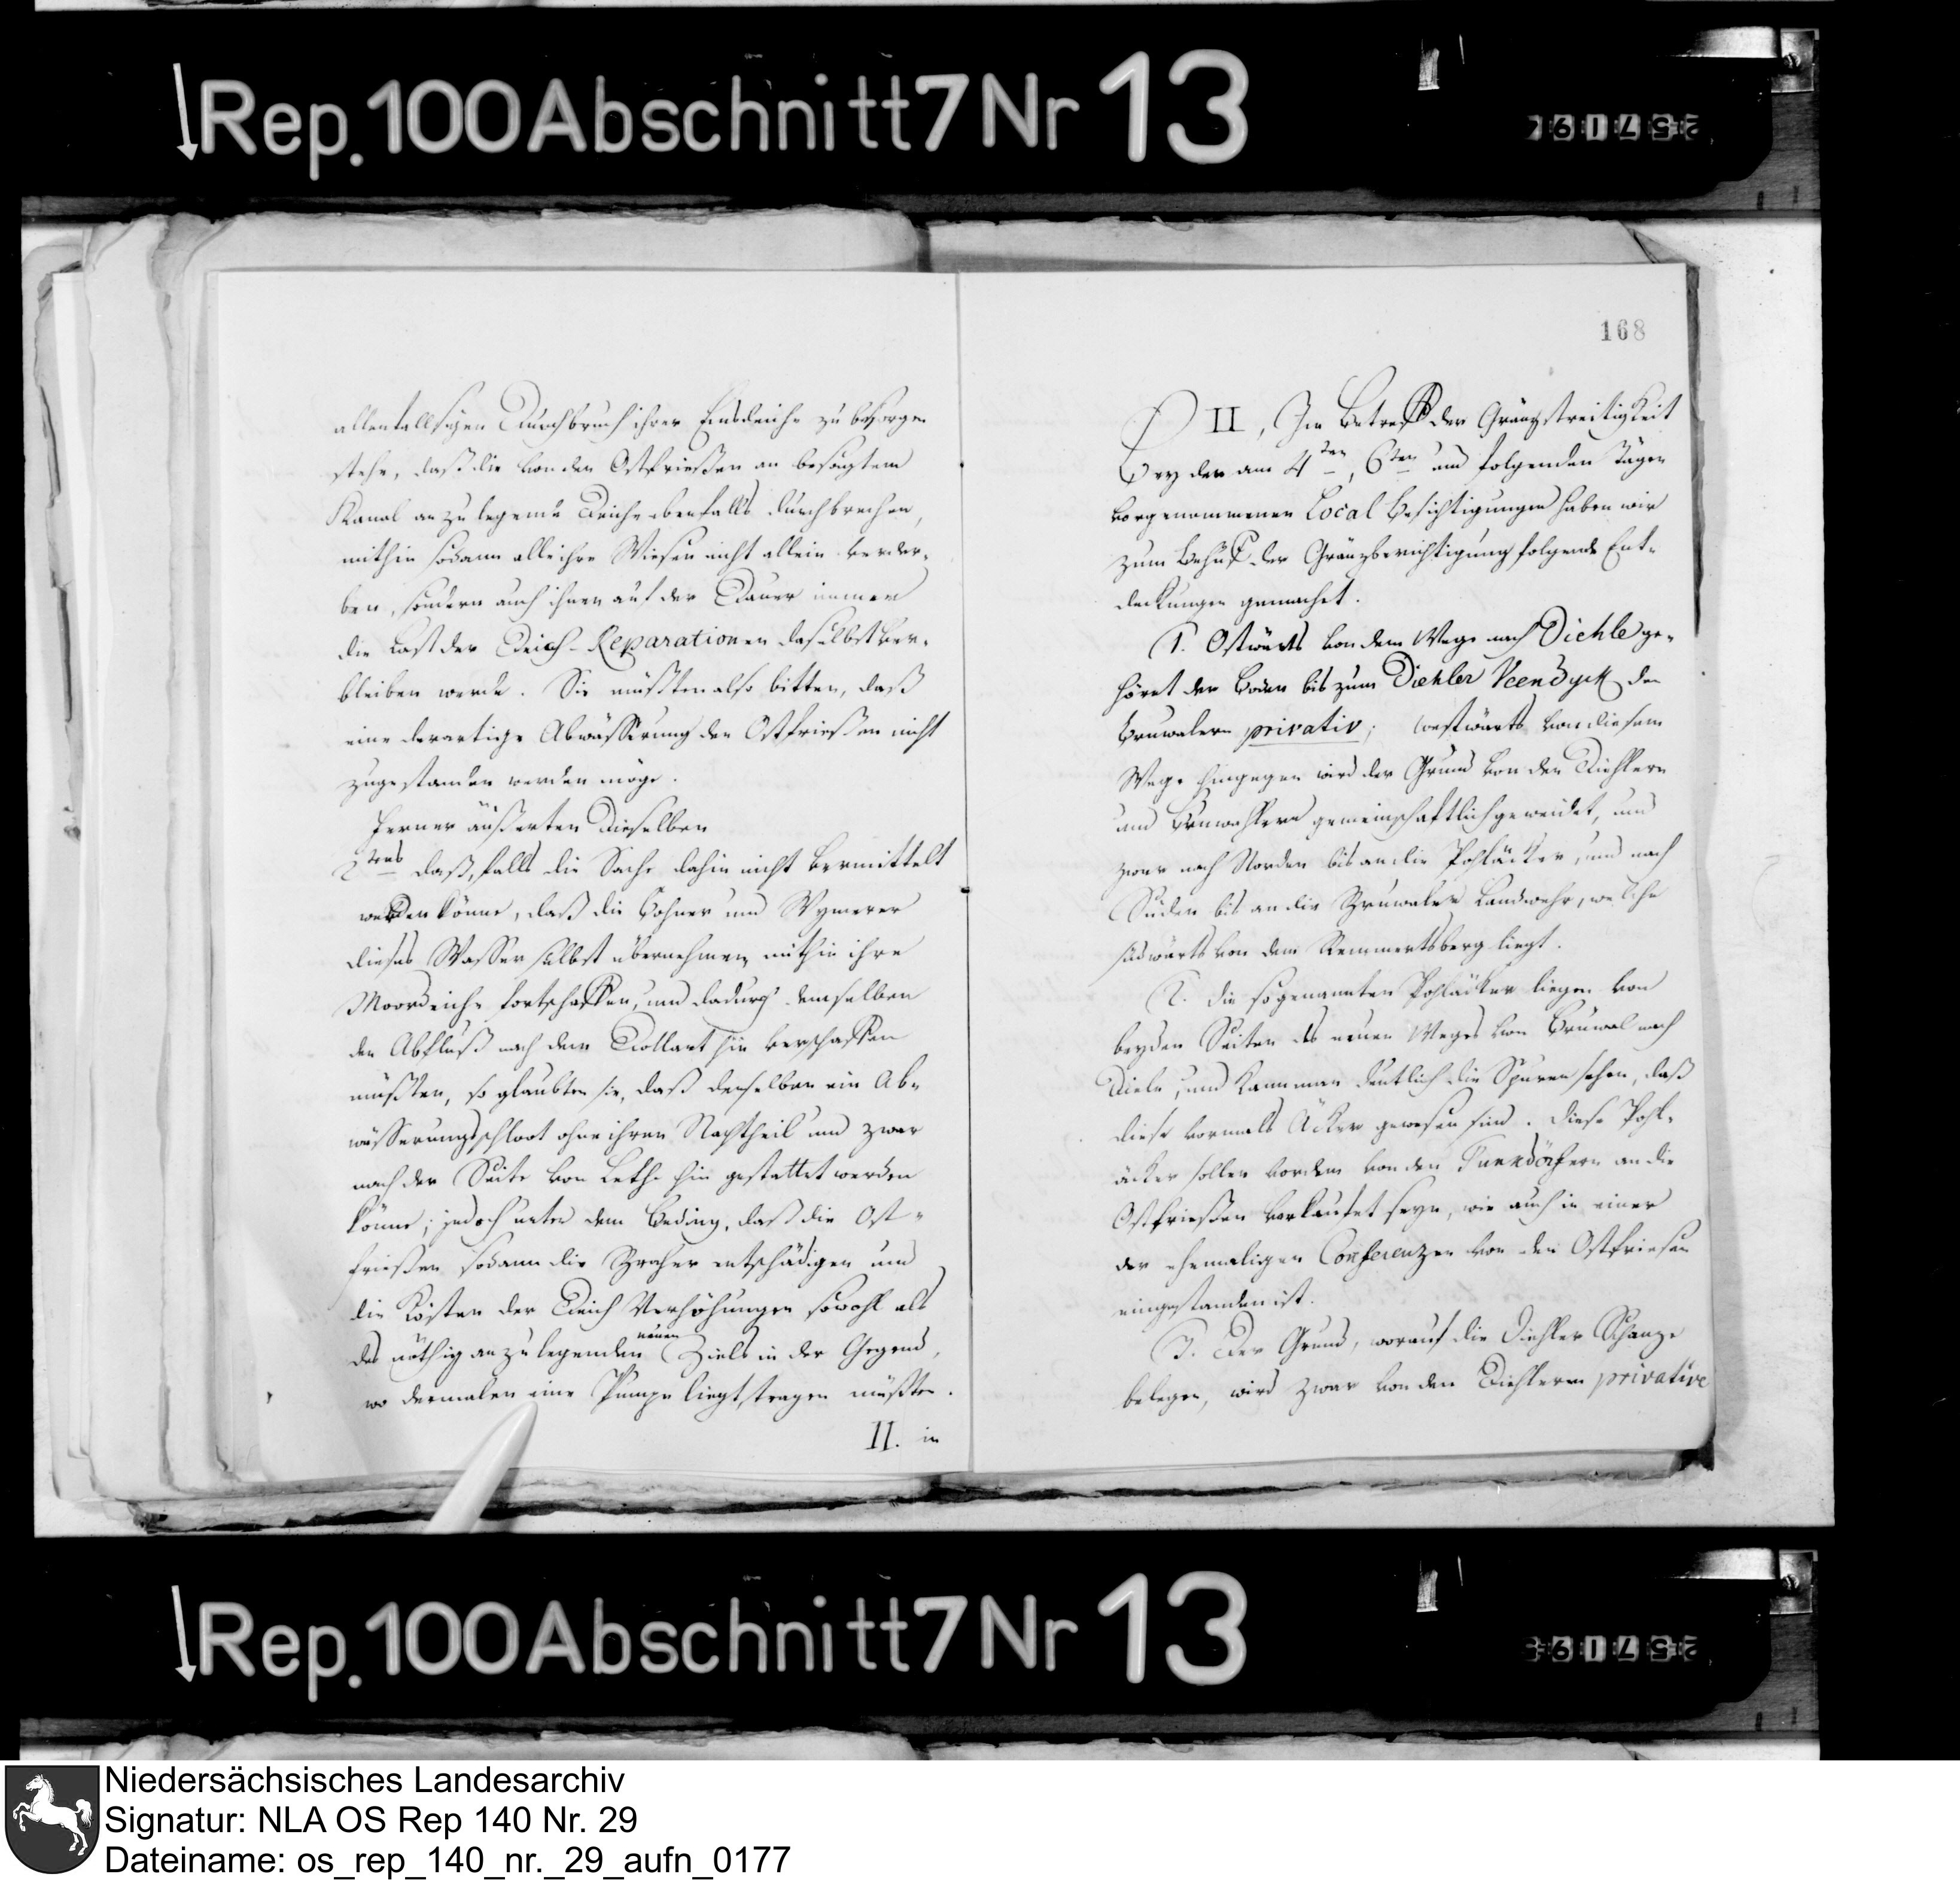 Rep. 100 Abschnitt 7 Nr 13
168
allenfallsigen Durchbruch ihrer Emsdeiche zu besorgen
stehe, daß die von den Ostfrießen an besagtem
Kanal anzulegende Deiche ebenfalls durchbrechen,
mithin sodann alle ihre Wiesen nicht allein verder-
ben, sondern auch ihnen auf der Dauer immer
die Last der Deich-Reparationen daselbst ver-
bleiben werde. Sie müßten also bitten, daß
eine derartige Abwässerung den Ostfrießen nicht
zugestanden werden möge.
Ferner äußerten dieselben
2tens daß, falls die Sache dahin nicht vermittelt
werden könne, daß die Bohner und Wymerer
dieses Wasser selbst übernehmen, mithin ihre
Moordeiche fortschaffen, und dadurch demselben
den Abfluß nach dem Dollart hin verschaffen
müßten, so glaubten sie, daß denselben ein Ab-
wässerungsschloot ohne ihren Nachtheil und zwar
nach der Seite von Lethe hin gestattet werden
könne; jedoch unter dem Beding, daß die Ost-
frießen sodann die Bracher entschädigen und
die Kosten der Deich Verhöhungen sowohl als
des nöthig anzulegenden neuen Ziels in der Gegend,
wo dermalen eine Pumpe liegt, tragen müßten.
II. in
II, In Betreff der Gränzstreitigkeit
Bey der am 4ten, 6ten und folgenden Tägen
vorgenommenen Local Besichtigungen haben wir
zum Behuf der Gränzberichtigung folgende Ent-
deckungen gemachet.
1. Ostwärts von dem Wege nach Diehle ge-
höret der Boden bis zum Diehler Veendyck den
Bruwalern privativ; westwärts von diesem
Wege hingegen wird der Grund von den Diehlern
und Bruwahlern gemeinschaftlich geweidet, und
zwar nach Norden bis an die Pohläcker, und nach
Süden bis an die Bruwaler Landwehr, welche
südwärts von dem Remmertsberg liegt.
2. die sogenannten Pohläcker liegen von
beyden Seiten des neuen Weges von Bruwal nach
Diele, und kann man deutlich die Spuren sehen, daß
diese vormals Äcker gewesen sind. Diese Pohl-
äcker sollen vordem von den Tunxdörfern an die
Ostfrießen verkaufet seyn, wie auch in einer
der ehemaligen Conferenzen von den Ostfriesen
eingestanden ist.
3. Der Grund, worauf die Diehler Schanze
belegen, wird zwar von den Diehlern privative
Rep. 100 Abschnitt 7 Nr 13
Niedersächsisches Landesarchiv
Signatur: NLA OS Rep 140 Nr. 29
Dateiname: os_rep_140_nr._29_aufn_0177